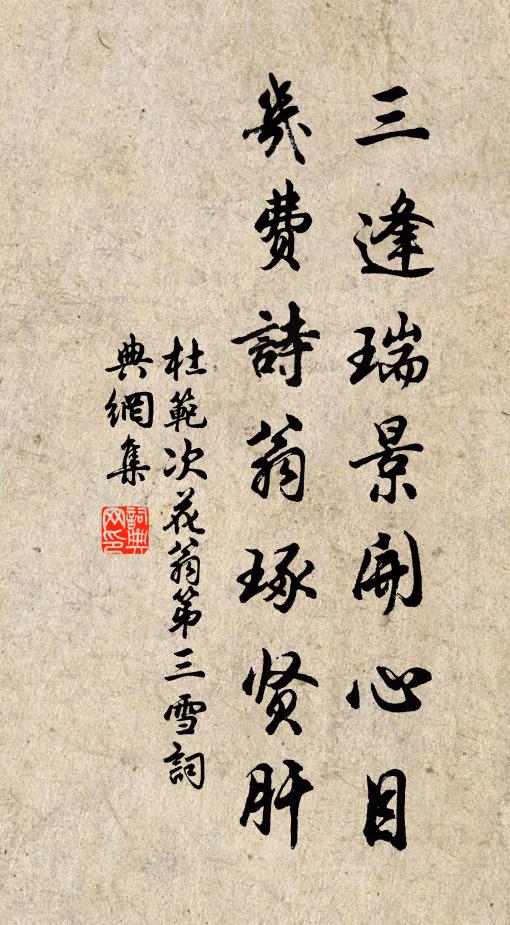 三逢瑞景開心目
幾費詩翁琢贤肝
杜範次花翁第三雪詞
典網集
詞典网印